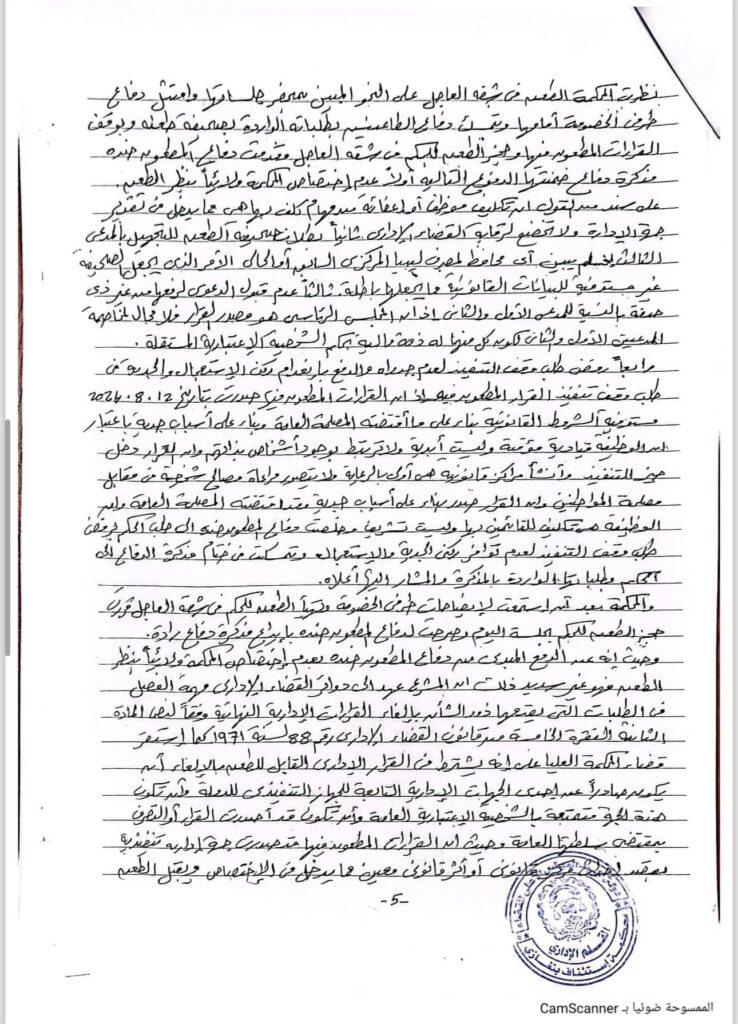 نظرت المحكمة الطعن في شقه العاجل على النحو المبين بمحضر جلساتها وامتثل دفاع
طرفي الخصومة أمامها وتمسك دفاع الطاعنين بطلباته الواردة بصحيفة طعنه وبوقف
القرارات المطعون فيها وحجز الطعن للحكم في شقه العاجل وقدمت دفاع المطعون ضده
مذكرة دفاع ضمنتها الدفوع التالية أولاً عدم إختصاص المحكمة ولائياً بنظر الطعن
على سند من القول ان تكليف موظف أو إعفائه من مهام كلف بها هي مما يدخل في تقدير
جهة الإدارة ولا تخضع لرقابة القضاء الإداري ثانياً بطلان صحيفة الطعن للتجهيل بالمدعي
الثالث إذ لم يبين أي محافظ لمصرف ليبيا المركزي السابق أو الحالي الأمر الذي يجعل الصحيفة
غير مستوفية للبيانات القانونية مما يجعلها باطلة. ثالثاً عدم قبول الدعوى لرفعها من غير ذي
صفة بالنسبة للمدعى الأول والثاني إذ ان المجلس الرئاسي هو مصدر القرار فلا مجال لمخاصمة
المدعيين الأول والثاني لكون كل منهما له ذمة مالية بحكم الشخصية الإعتبارية المستقلة.
رابعاً رفض طلب وقف التنفيذ لعدم جدواه والدفع بإنعدام ركن الإستعجال والجدية في
طلب وقف تنفيذ القرار المطعون فيه إذ ان القرارات المطعون فيها صدرت بتاريخ 12-8-2024
مستوفية الشروط القانونية بناء على ما أقتضته المصلحة العامة وبناء على أسباب جدية بإعتبار
ان الوظيفة قيادية مؤقتة وليست أبدية ولا ترتبط بوجود أشخاص بذاتهم وان القرار دخل
حيز التنفيذ وأنشأ مراكز قانونية هي أولى بالرعاية ولا يتصور مراعاة مصالح شخصية في مقابل
مصلحة المواطنين وان القرار صدر بناء على أسباب جدية وقد اقتضته المصلحة العامة وان
الوظيفة هي تكليف للقائمين بها وليست تشريف وخلصت دفاع المطعون ضده الى طلب الحكم برفض
طلب وقف التنفيذ لعدم توافر ركني الجدية والإستعجال وتمسكت في ختام مذكرة الدفاع الى
الحكم وطلباتها الواردة بالمذكرة والمشار اليها أعلاه.
والمحكمة بعد أن استمعت لإيضاحات طرفي الخصومة وتهيأ الطعن للحكم في شقه العاجل قررت
حجز الطعن للحكم بجلسة اليوم وصرحت لدفاع المطعون ضده بإيداع مذكرة دفاع رادة.
وحيث إنه عن الدفع المبدى من دفاع المطعون ضده بعدم إختصاص المحكمة ولائياً بنظر
الطعن فهو غير سديد ذلك ان المشرع عهد الى دوائر القضاء الإداري مهمة الفصل
في الطلبات التي يقدمها ذوو الشأن بإلغاء القرارات الإدارية النهائية وفقاً لنص المادة
الثانية الفقرة الخامسة من قانون القضاء الإداري رقم 88 لسنة 1971 كما إستقر
قضاء المحكمة العليا على إنه يشترط في القرار الإداري القابل للطعن بالإلغاء أن
يكون صادراً عن إحدى الجهات الإدارية التابعة للجهاز التنفيذي للدولة وأن تكون
هذه الجهة متمتعة بالشخصية الإعتبارية العامة وأن تكون قد أصدرت القرار أو التصرف
بمقتضى سلطتها العامة وحيث ان القرارات المطعون فيها قد صدرت جهة إدارية تنفيذية
بقصد إحداث مركز قانوني أو أثر قانوني معين مما يدخل في الإختصاص ويقبل الطعن
-5-
محكمة إستئناف بنغازي
القلم الإداري
الممسوحة ضوئيا بـ CamScanner